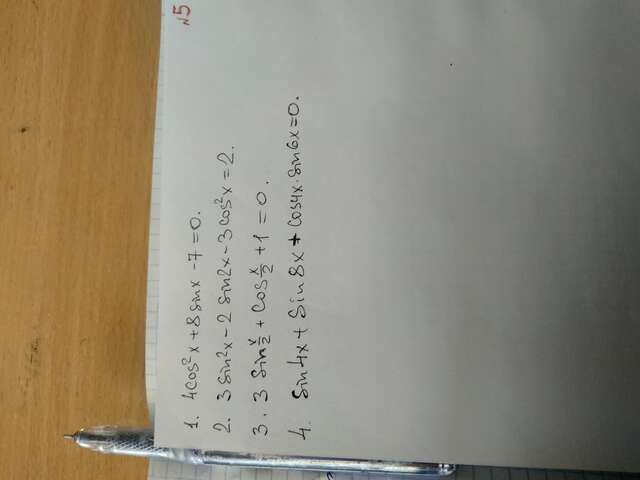 №5
1. 4cos²x+8sinx-7=0.
2. 3sin²x-2sin2x-3cos²x=2.
3. 3sin x/2 + cos x/2 +1=0.
4. sin4x+sin8x+cos4x·sin6x=0.